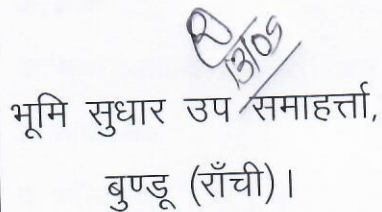 13/05
भूमि सुधार उप समाहर्त्ता,
बुण्डू (राँची)।